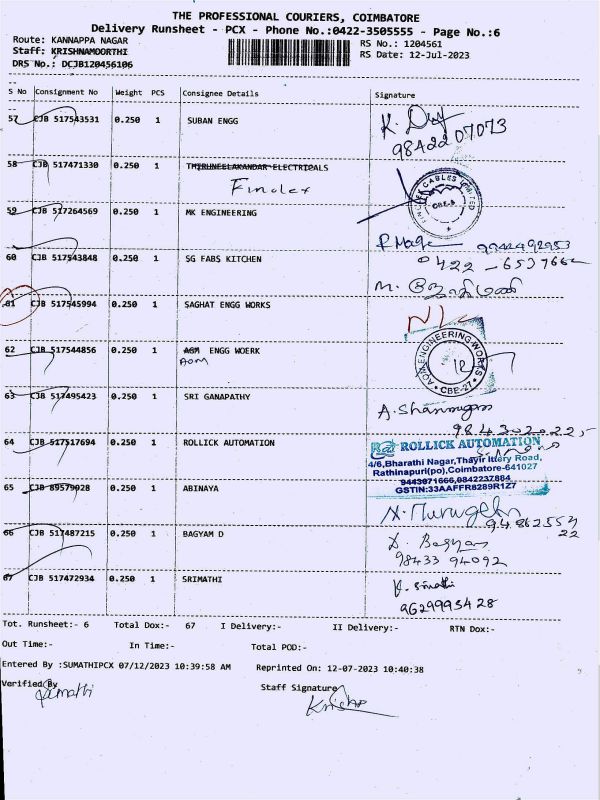 THE PROFESSIONAL COURIERS, COIMBATORE
Delivery Runsheet - PCX - Phone No.:0422-3505555 - Page No.:6
Route: KANNAPPA NAGAR
RS No.: 1204561
Staff: KRISHNAMOORTHI
RS Date: 12-Jul-2023
DRS No.: DCJB120456106
S No Consignment No Weight PCS Consignee Details Signature
57 CJB 517543531 0.250 1 SUBAN ENGG
58 CJB 517471330 0.250 1 THIRUNEELAKANDAR ELECTRICALS
Finolex
CABLES LIMITED
CBE-6
59 CJB 517264569 0.250 1 MK ENGINEERING
60 CJB 517543848 0.250 1 SG FABS KITCHEN
0422 - 6537662
61 CJB 517545994 0.250 1 SAGHAT ENGG WORKS
62 CJB 517544856 0.250 1 AGM ENGG WOERK
AOM
AOM ENGINEERING WORKS
CBE-27
63 CJB 517495423 0.250 1 SRI GANAPATHY
A. Shanmugam
64 CJB 517517694 0.250 1 ROLLICK AUTOMATION
ROLLICK AUTOMATION
4/6,Bharathi Nagar,Thayir Ittery Road,
Rathinapuri(po),Coimbatore-641027
9443071666,9842237884
GSTIN:33AAFFR8289R1Z7
65 CJB 89579928 0.250 1 ABINAYA
N. Murugeln
66 CJB 517487215 0.250 1 BAGYAM D
D. Bagyam
98433 94092
67 CJB 517472934 0.250 1 SRIMATHI
9629993428
Tot. Runsheet:- 6 Total Dox:- 67 I Delivery:- II Delivery:- RTN Dox:-
Out Time:- In Time:- Total POD:-
Entered By :SUMATHIPCX 07/12/2023 10:39:58 AM Reprinted On: 12-07-2023 10:40:38
Verified By Staff Signature
Sumathi
Krishna